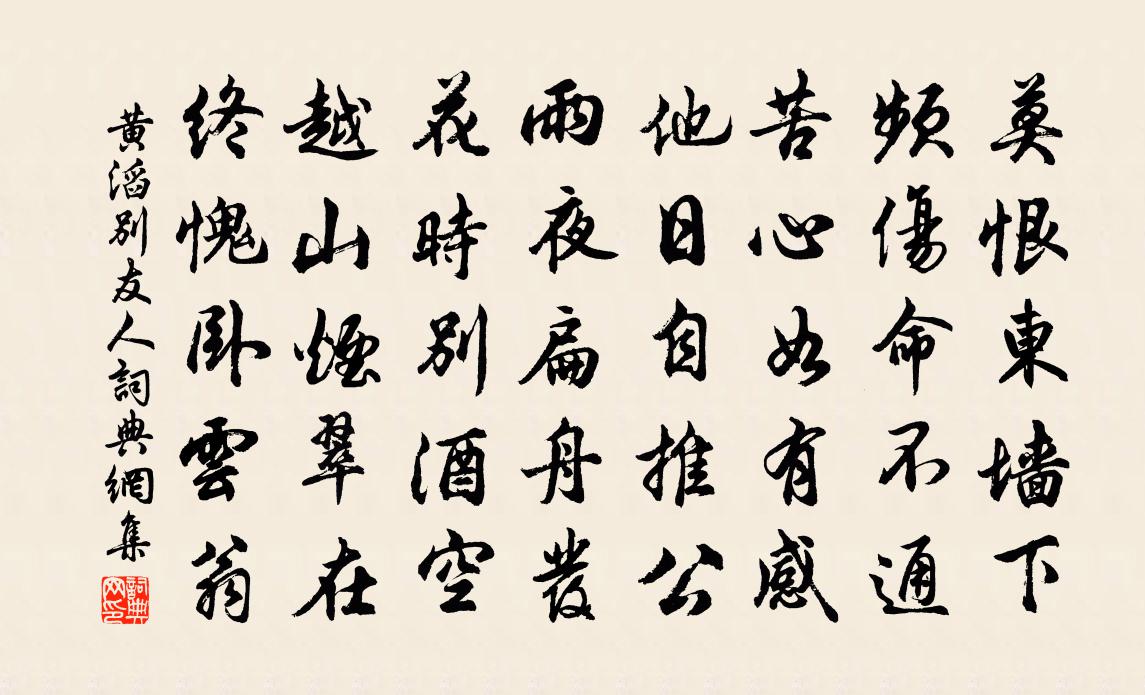 莫恨東墻下
頻傷命不通
苦心如有感
他日自推公
雨夜扁舟發
花時別酒空
越山煙翠在
終愧臥雲翁
黃滔別友人詞典網集
詞典网印